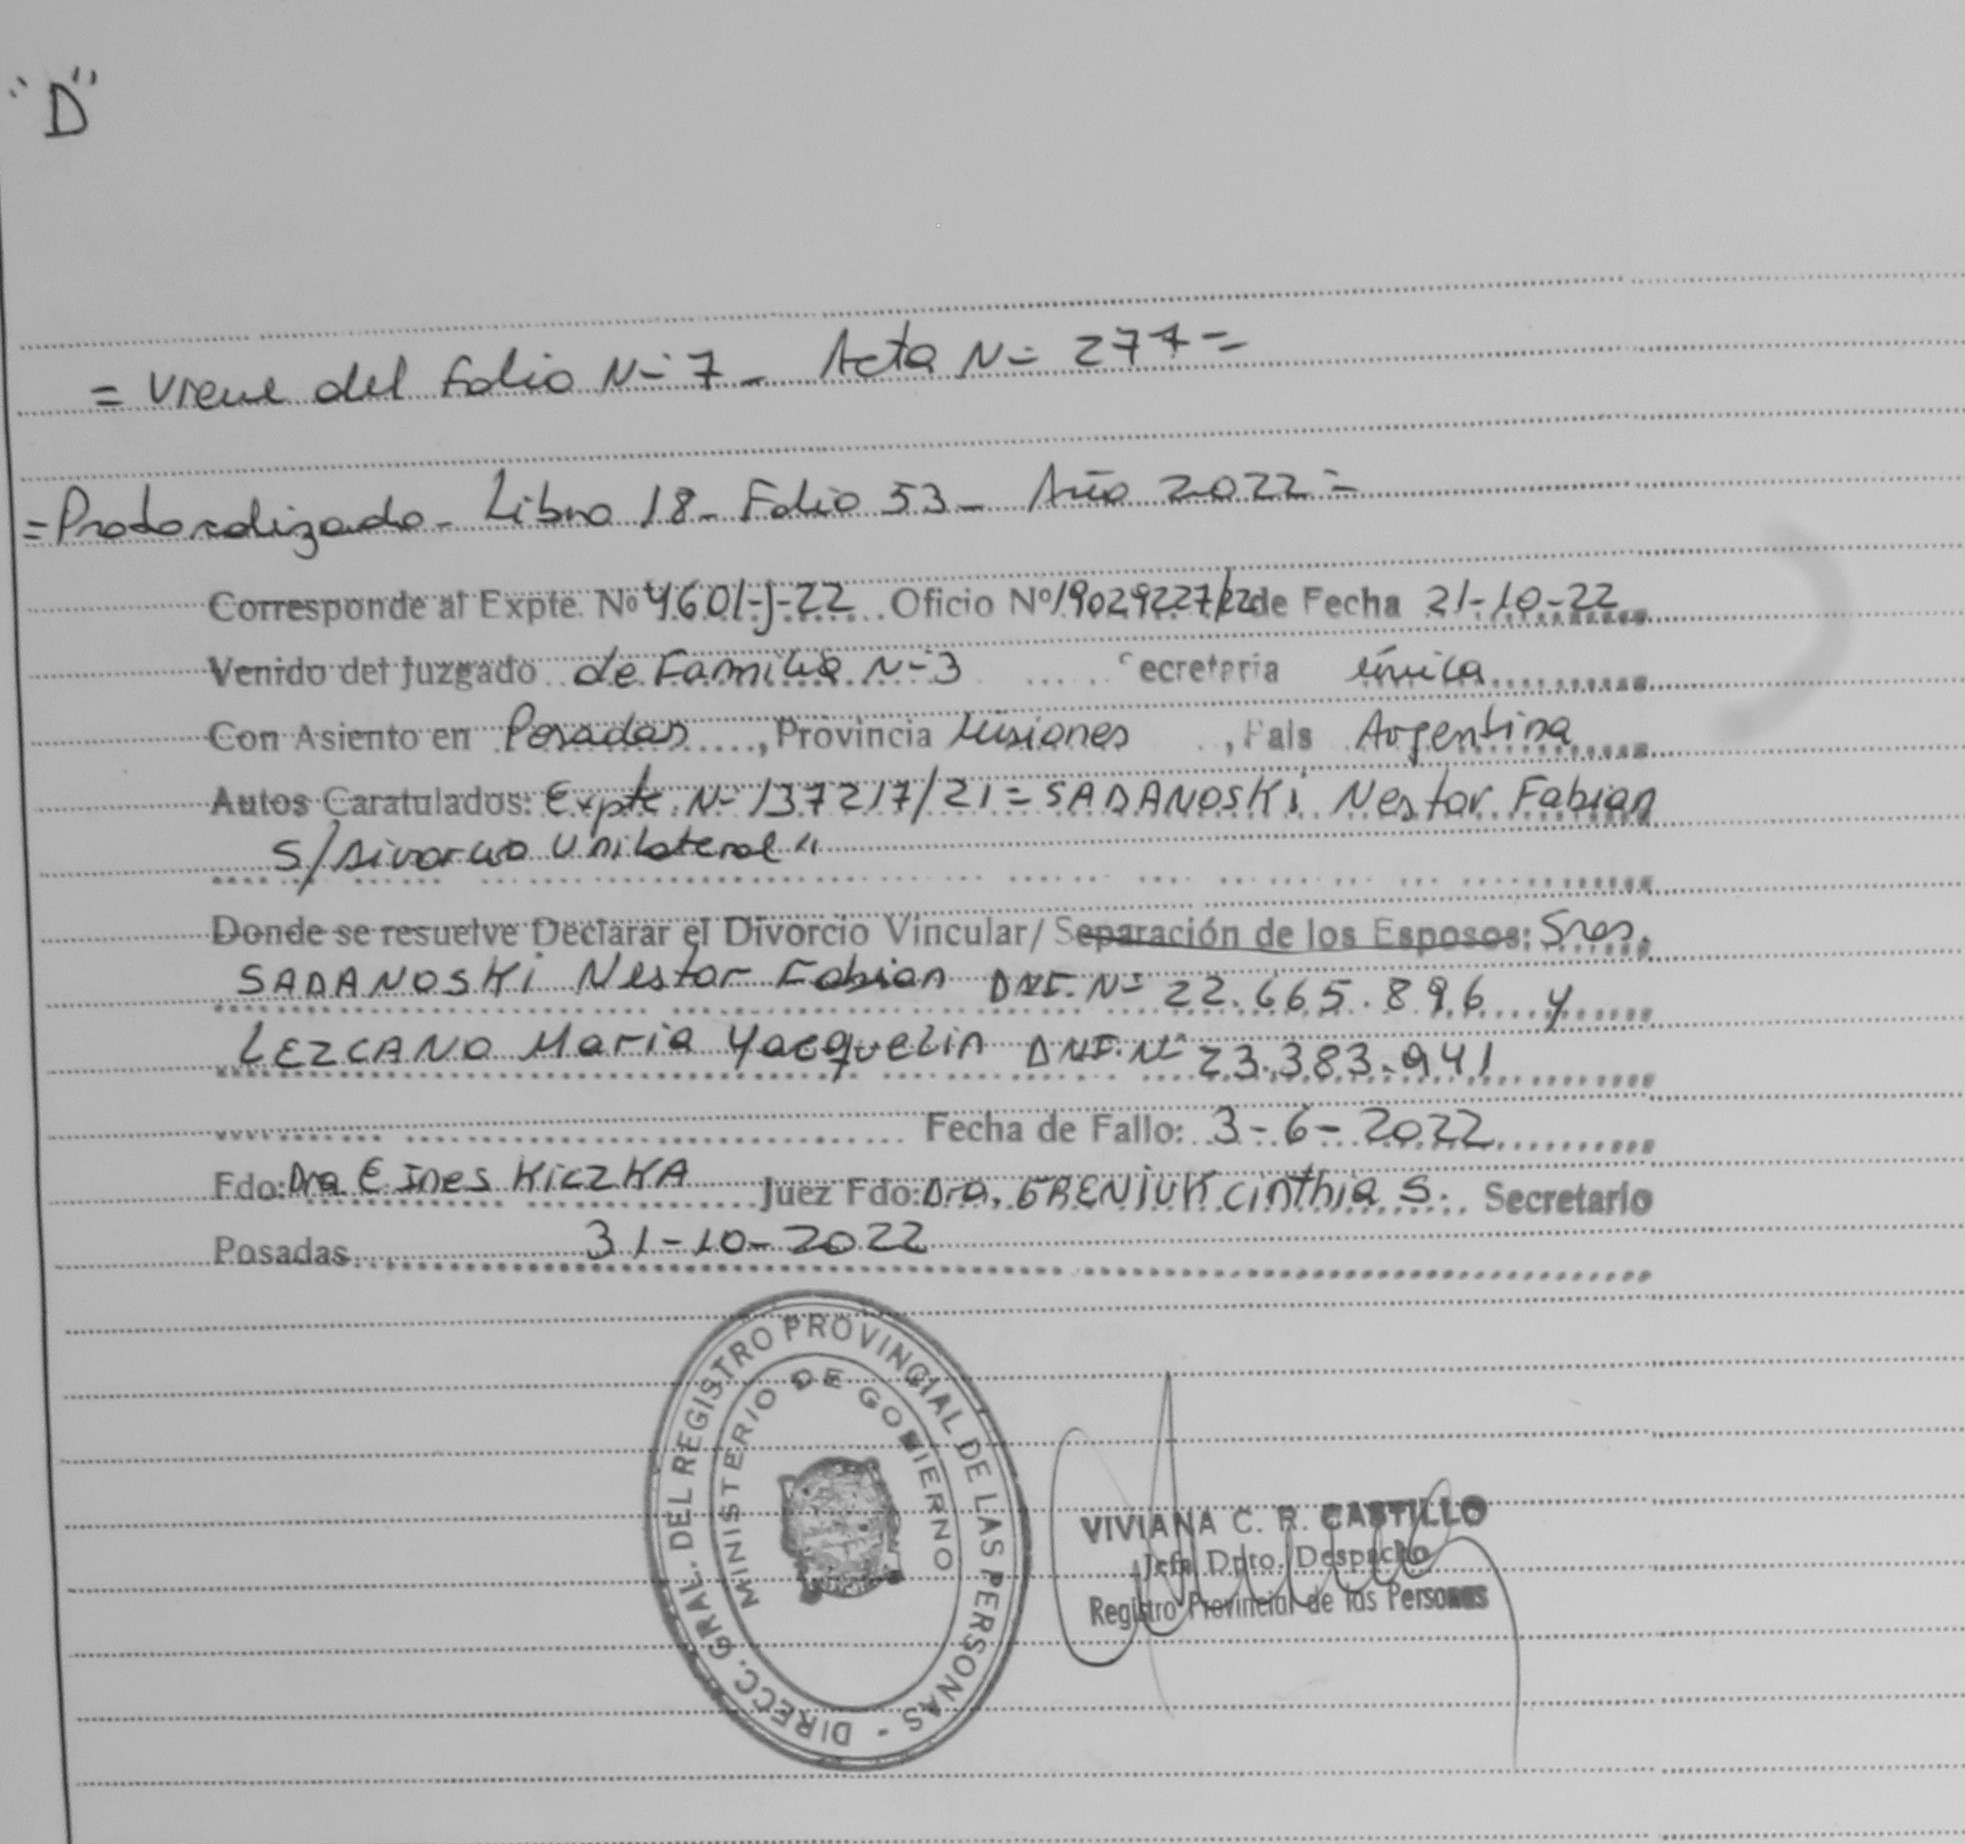 "D"
= Viene del Folio N- 7 - Acta N- 277 =
= Protocolizado - Libro 18 - Folio 53 - Año 2022 =
Corresponde al Expte. Nº 4601-J-22 Oficio Nº 19029227/22 de Fecha 21-10-22
Venido del Juzgado de Familia N- 3 ecretaria única
Con Asiento en Posadas, Provincia Misiones, País Argentina
Autos Caratulados: Expte. N- 137217/21 = SADANOSKi Nestor Fabian
S/Divorcio Unilateral"
Donde se resuelve Declarar el Divorcio Vincular/ Separación de los Esposos: Sres.
SADANOSKi Nestor Fabian DNI. Nº 22.665.896 y
LEZCANO Maria Yacquelin DNI. Nº 23.383.941
Fecha de Fallo: 3-6-2022
Fdo: Dra E Ines KiczKA Juez Fdo: Dra. GRENiUK Cinthia S. Secretario
Posadas 31-10-2022
DIRECC. GRAL. DEL REGISTRO PROVINCIAL DE LAS PERSONAS -
MINISTERIO DE GOBIERNO
VIVIANA C. R. CASTILLO
Jefa Dpto. Despacho
Registro Provincial de las Personas